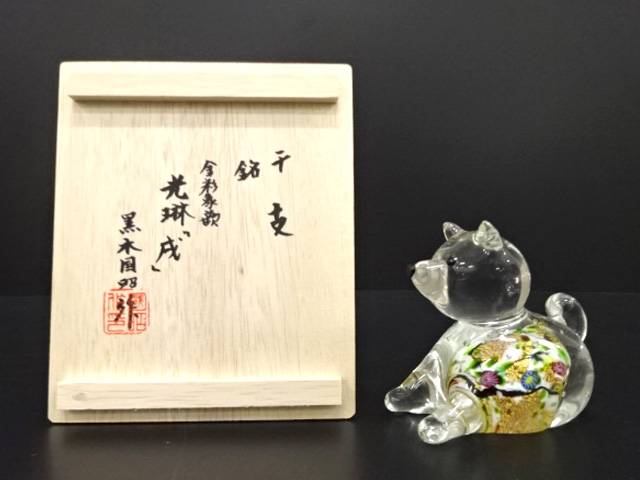 干支
銘
金彩象嵌
光琳「戌」
黒木国昭 作